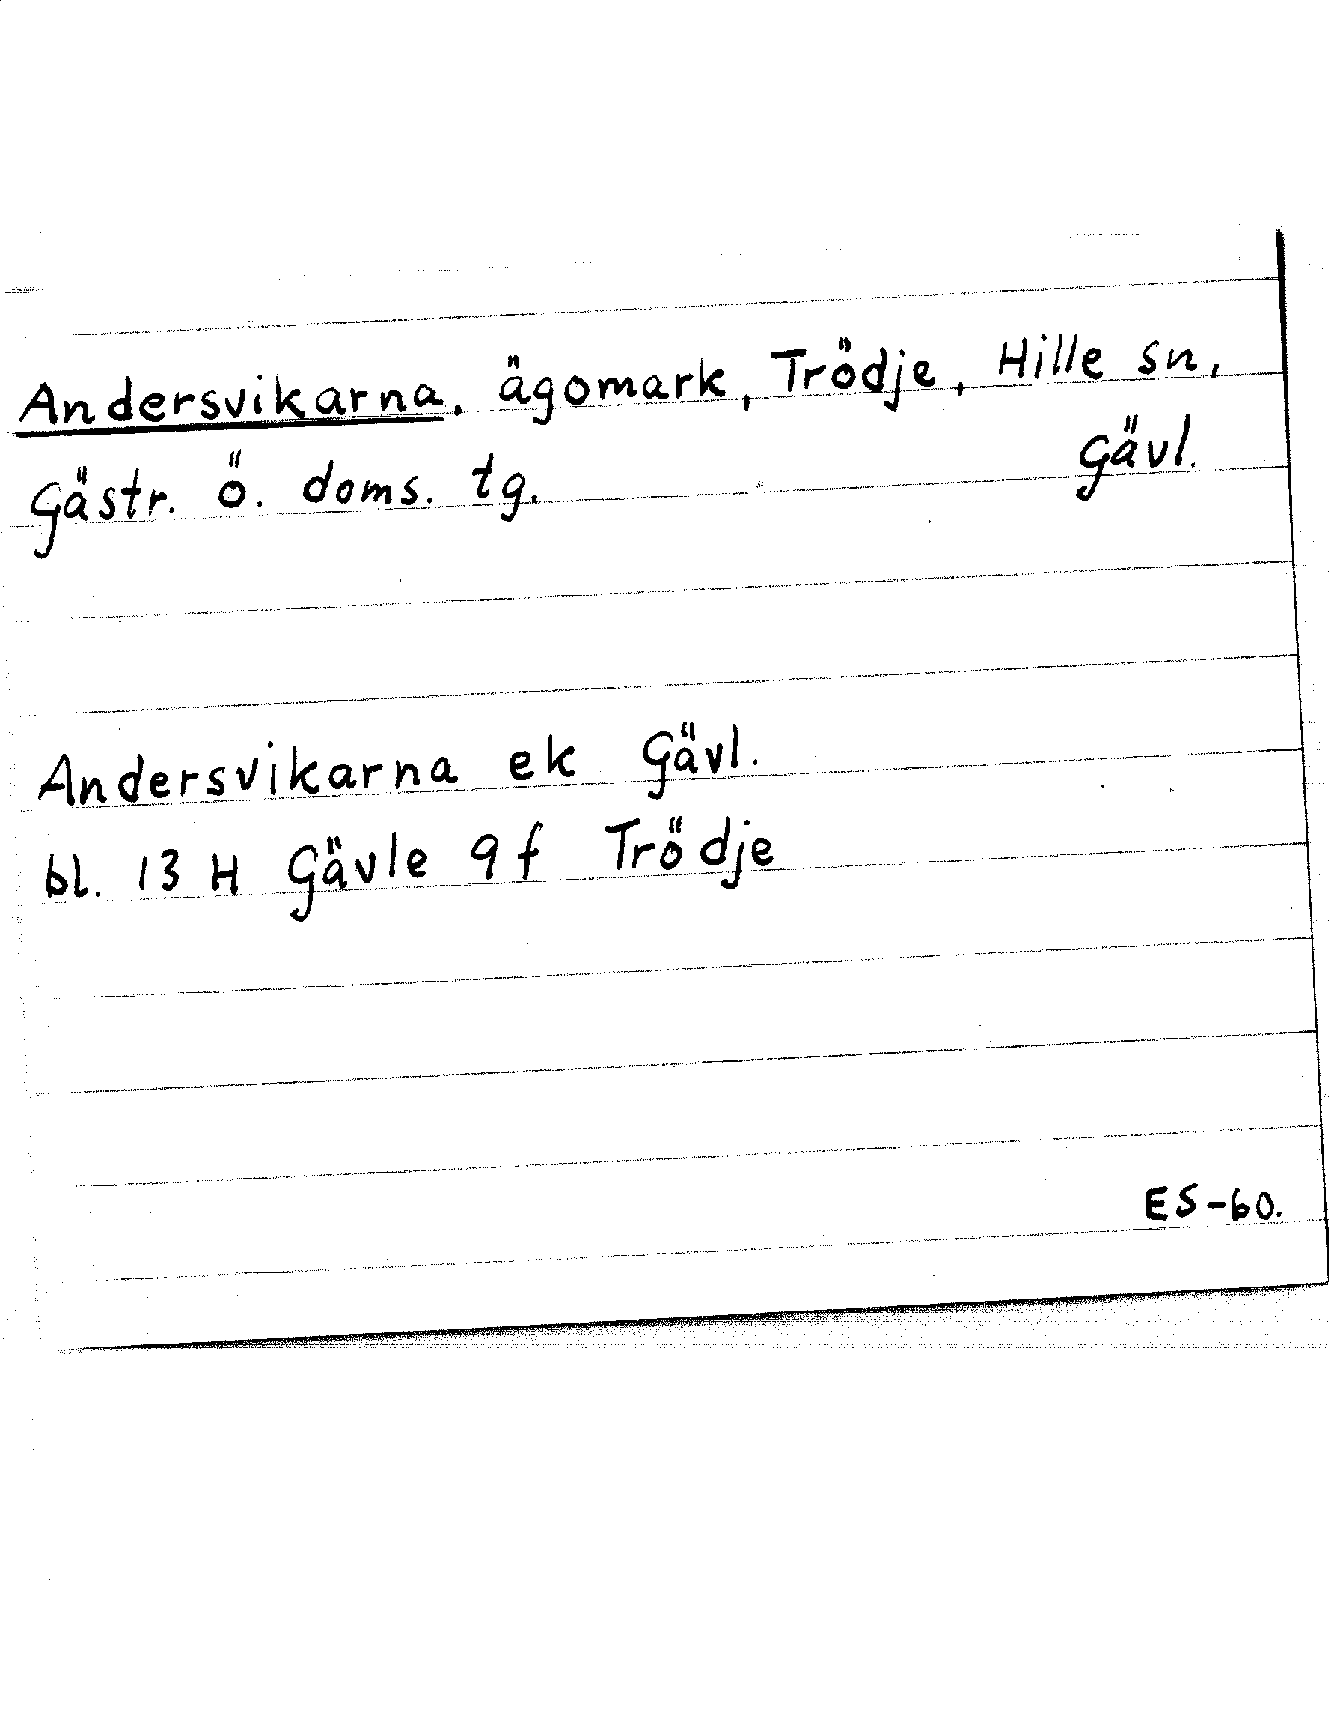 Andersvikarna, ägomark, Trödje, Hille sn,
Gästr. ö. doms. tg. Gävl.
Andersvikarna ek Gävl.
bl. 13 H Gävle 9 f Trödje
ES-60.